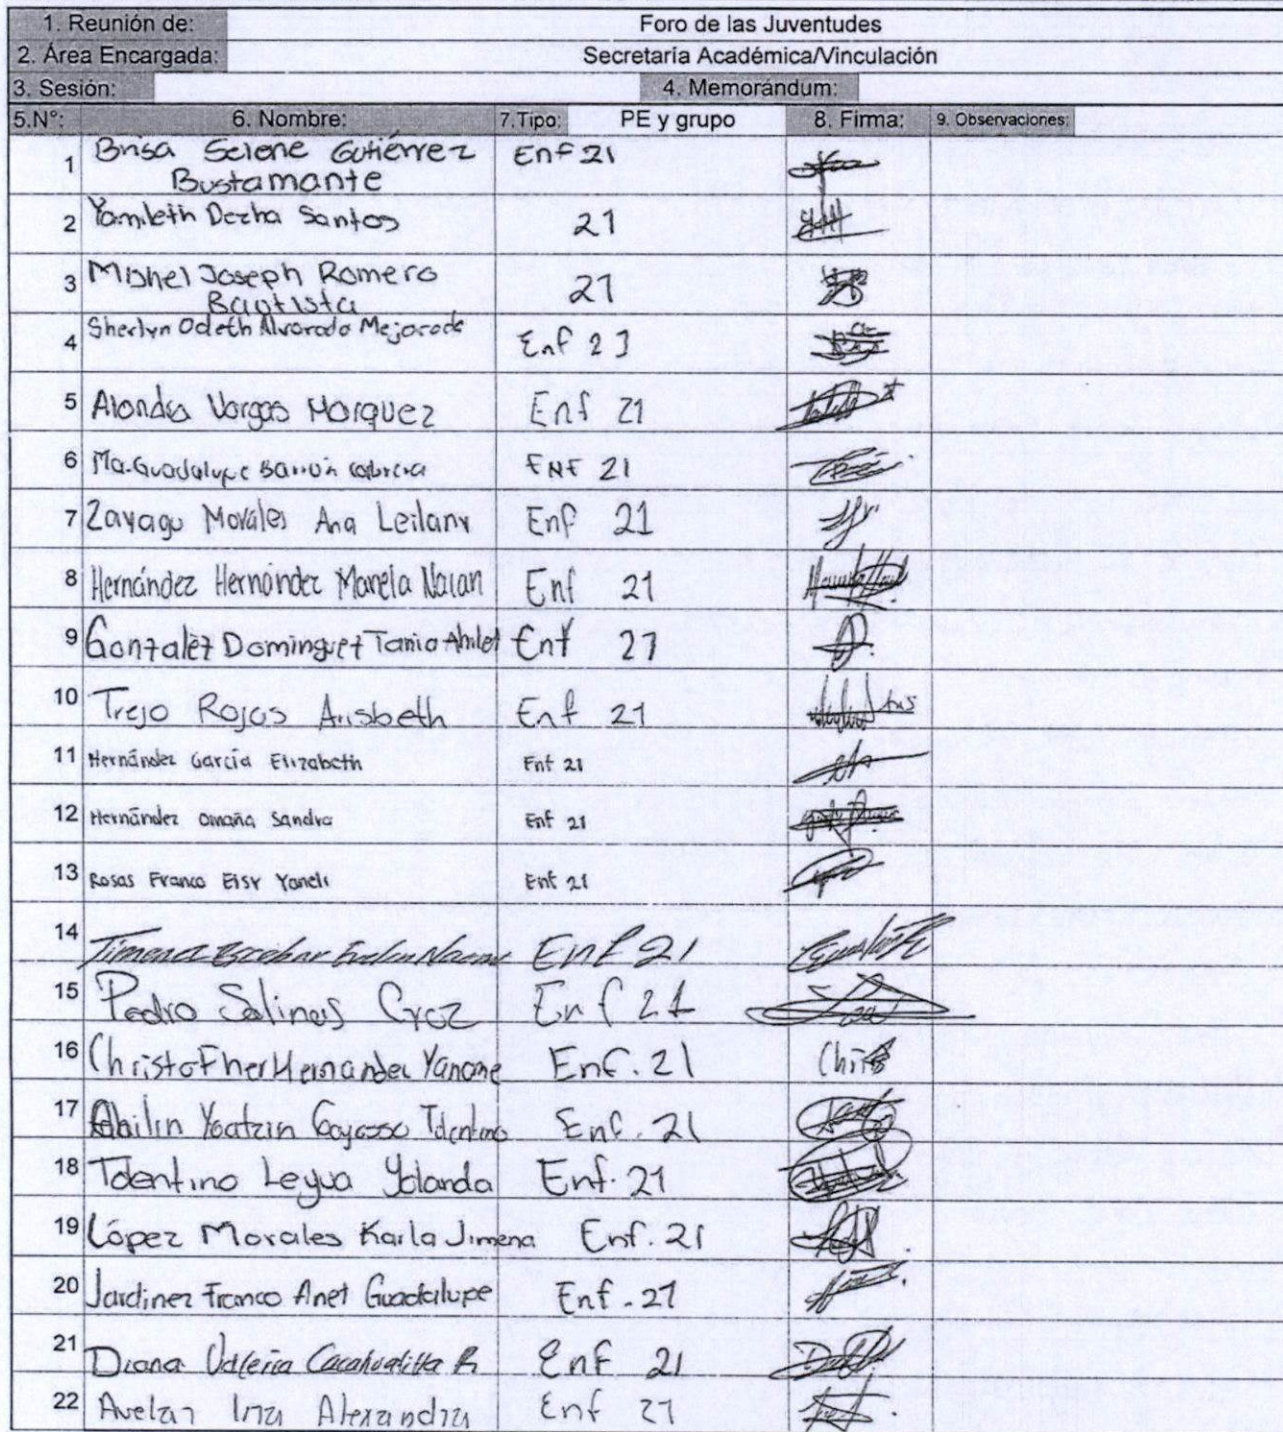 1. Reunión de: Foro de las Juventudes
2. Área Encargada: Secretaría Académica/Vinculación
3. Sesión: 4. Memorándum:
5.N°: 6. Nombre: 7.Tipo: PE y grupo 8. Firma: 9. Observaciones:
1 Brisa Selene Gutiérrez Enf 21
Bustamante
2 Yamileth Dezha Santos 21
3 Mishel Joseph Romero 21
Bautista
4 Sherlyn Odeth Alvarado Mejorada Enf 23
5 Alondra Vargas Marquez Enf 21
6 Ma. Guadalupe Barrón Cabrera ENF 21
7 Zavagu Morales Ana Leilany Enf 21
8 Hernández Hernández Mariela Naian Enf 21
9 González Dominguez Tania Ahilet Enf 21
10 Trejo Rojas Arisbeth Enf 21
11 Hernández García Elizabeth Enf 21
12 Hernández Omaña Sandra Enf 21
13 Rosas Franco Eisy Yaneli Enf 21
14 Escobar Evelin Enf 21
15 Pedro Salinas Cruz Enf 21
16 Christofher Hernandez Yanome Enf. 21 Chris
17 Ahilin Yoatzin Gayosso Tolentino Enf. 21
18 Tolentino Leyva Yolanda Enf. 21
19 López Morales Karla Jimena Enf. 21
20 Jardinez Franco Anet Guadalupe Enf. 21
21 Diana Valeria Cacahuatitla R Enf 21
22 Avelar Alexandra Enf 21